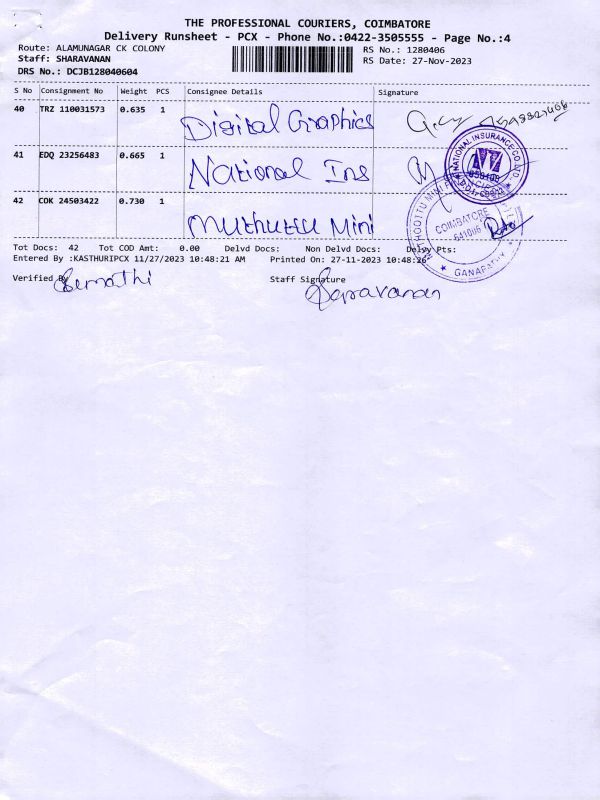 THE PROFESSIONAL COURIERS, COIMBATORE
Delivery Runsheet - PCX - Phone No.:0422-3505555 - Page No.:4
Route: ALAMUNAGAR CK COLONY
RS No.: 1280406
Staff: SHARAVANAN
RS Date: 27-Nov-2023
DRS No.: DCJB128040604
S No Consignment No Weight PCS Consignee Details Signature
40 TRZ 110031573 0.635 1 Digital Graphics
41 EDQ 23256483 0.665 1 National Ins
NATIONAL INSURANCE CO. LTD
42 CDK 24503422 0.730 1 Muthuttu Mini
COIMBATORE
641006
GANAPATHY
Tot Docs: 42 Tot COD Amt: 0.00 Delvd Docs: Non Delvd Docs: Delvy Pts:
Entered By :KASTHURIPCX 11/27/2023 10:48:21 AM Printed On: 27-11-2023 10:48:26
Verified By
Staff Signature
Saravanan